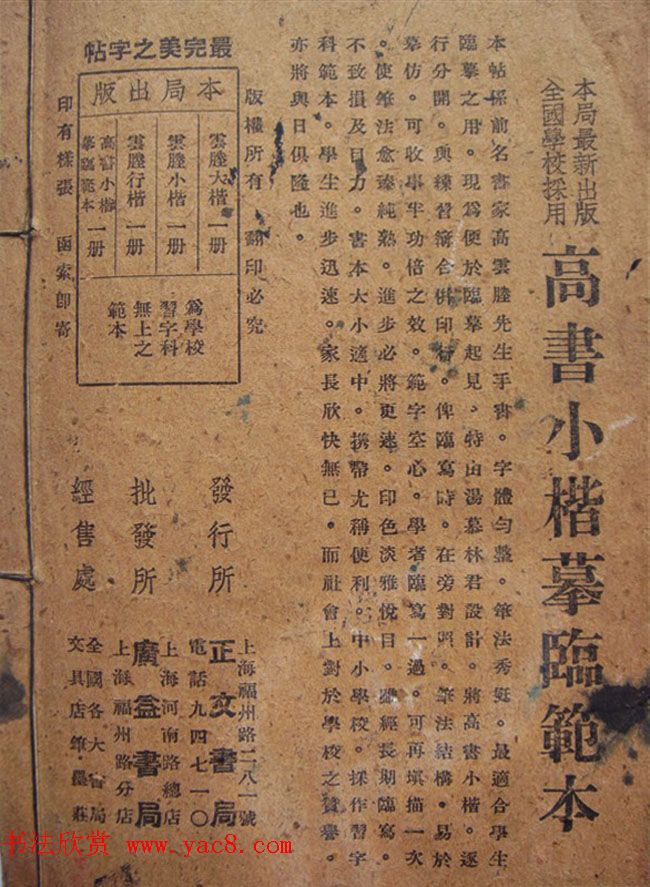 本局最新出版
全國學校採用
高書小楷摹臨範本
本帖係前名書家高雲塍先生手書。字體勻整。筆法秀挺。最適合學生
臨摹之用。現爲便於臨摹起見。特由湯慕林君設計。將高書小楷。逐
行分開。與練習簿合併印。俾臨寫時。在旁對照。筆法結構。易於
摹仿。可收事半功倍之效。範字空心。學者臨寫一過。可再填描一次
。使筆法愈臻純熟。進步必將更速。印色淡雅悅目。雖經長期臨寫。
不致損及目力。書本大小適中。携帶尤稱便利。中小學校。採作習字
科範本。學生進步迅速。家長欣快無已。而社會上對於學校之贊譽。
亦將與日俱隆也。
版權所有 翻印必究
最完美之字帖
本局出版
雲塍大楷 一册
雲塍小楷 一册
雲塍行楷 一册
高書小楷摹臨範本 一册
爲學校
習字科
無上之
範本
印有樣張 函索即寄
發行所 正文書局
上海福州路二八一號
電話九四七一〇
批發所 廣益書局
上海河南路總店
上海福州路分店
經售處
全國各大書局
文具店筆墨莊
书法欣赏 www.yac8.com